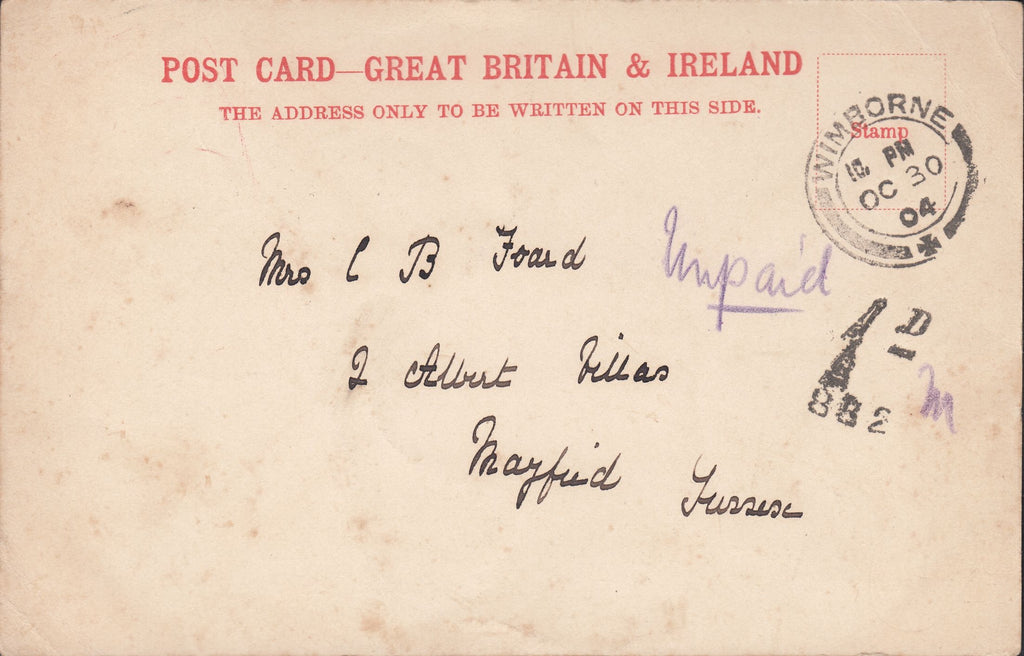 POST CARD—GREAT BRITAIN & IRELAND
THE ADDRESS ONLY TO BE WRITTEN ON THIS SIDE.
Stamp
WIMBORNE
PM
OC 30
04
Mrs C B Foard
Unpaid
1 D
882
2 Albert Villas
Mayfield
Sussex